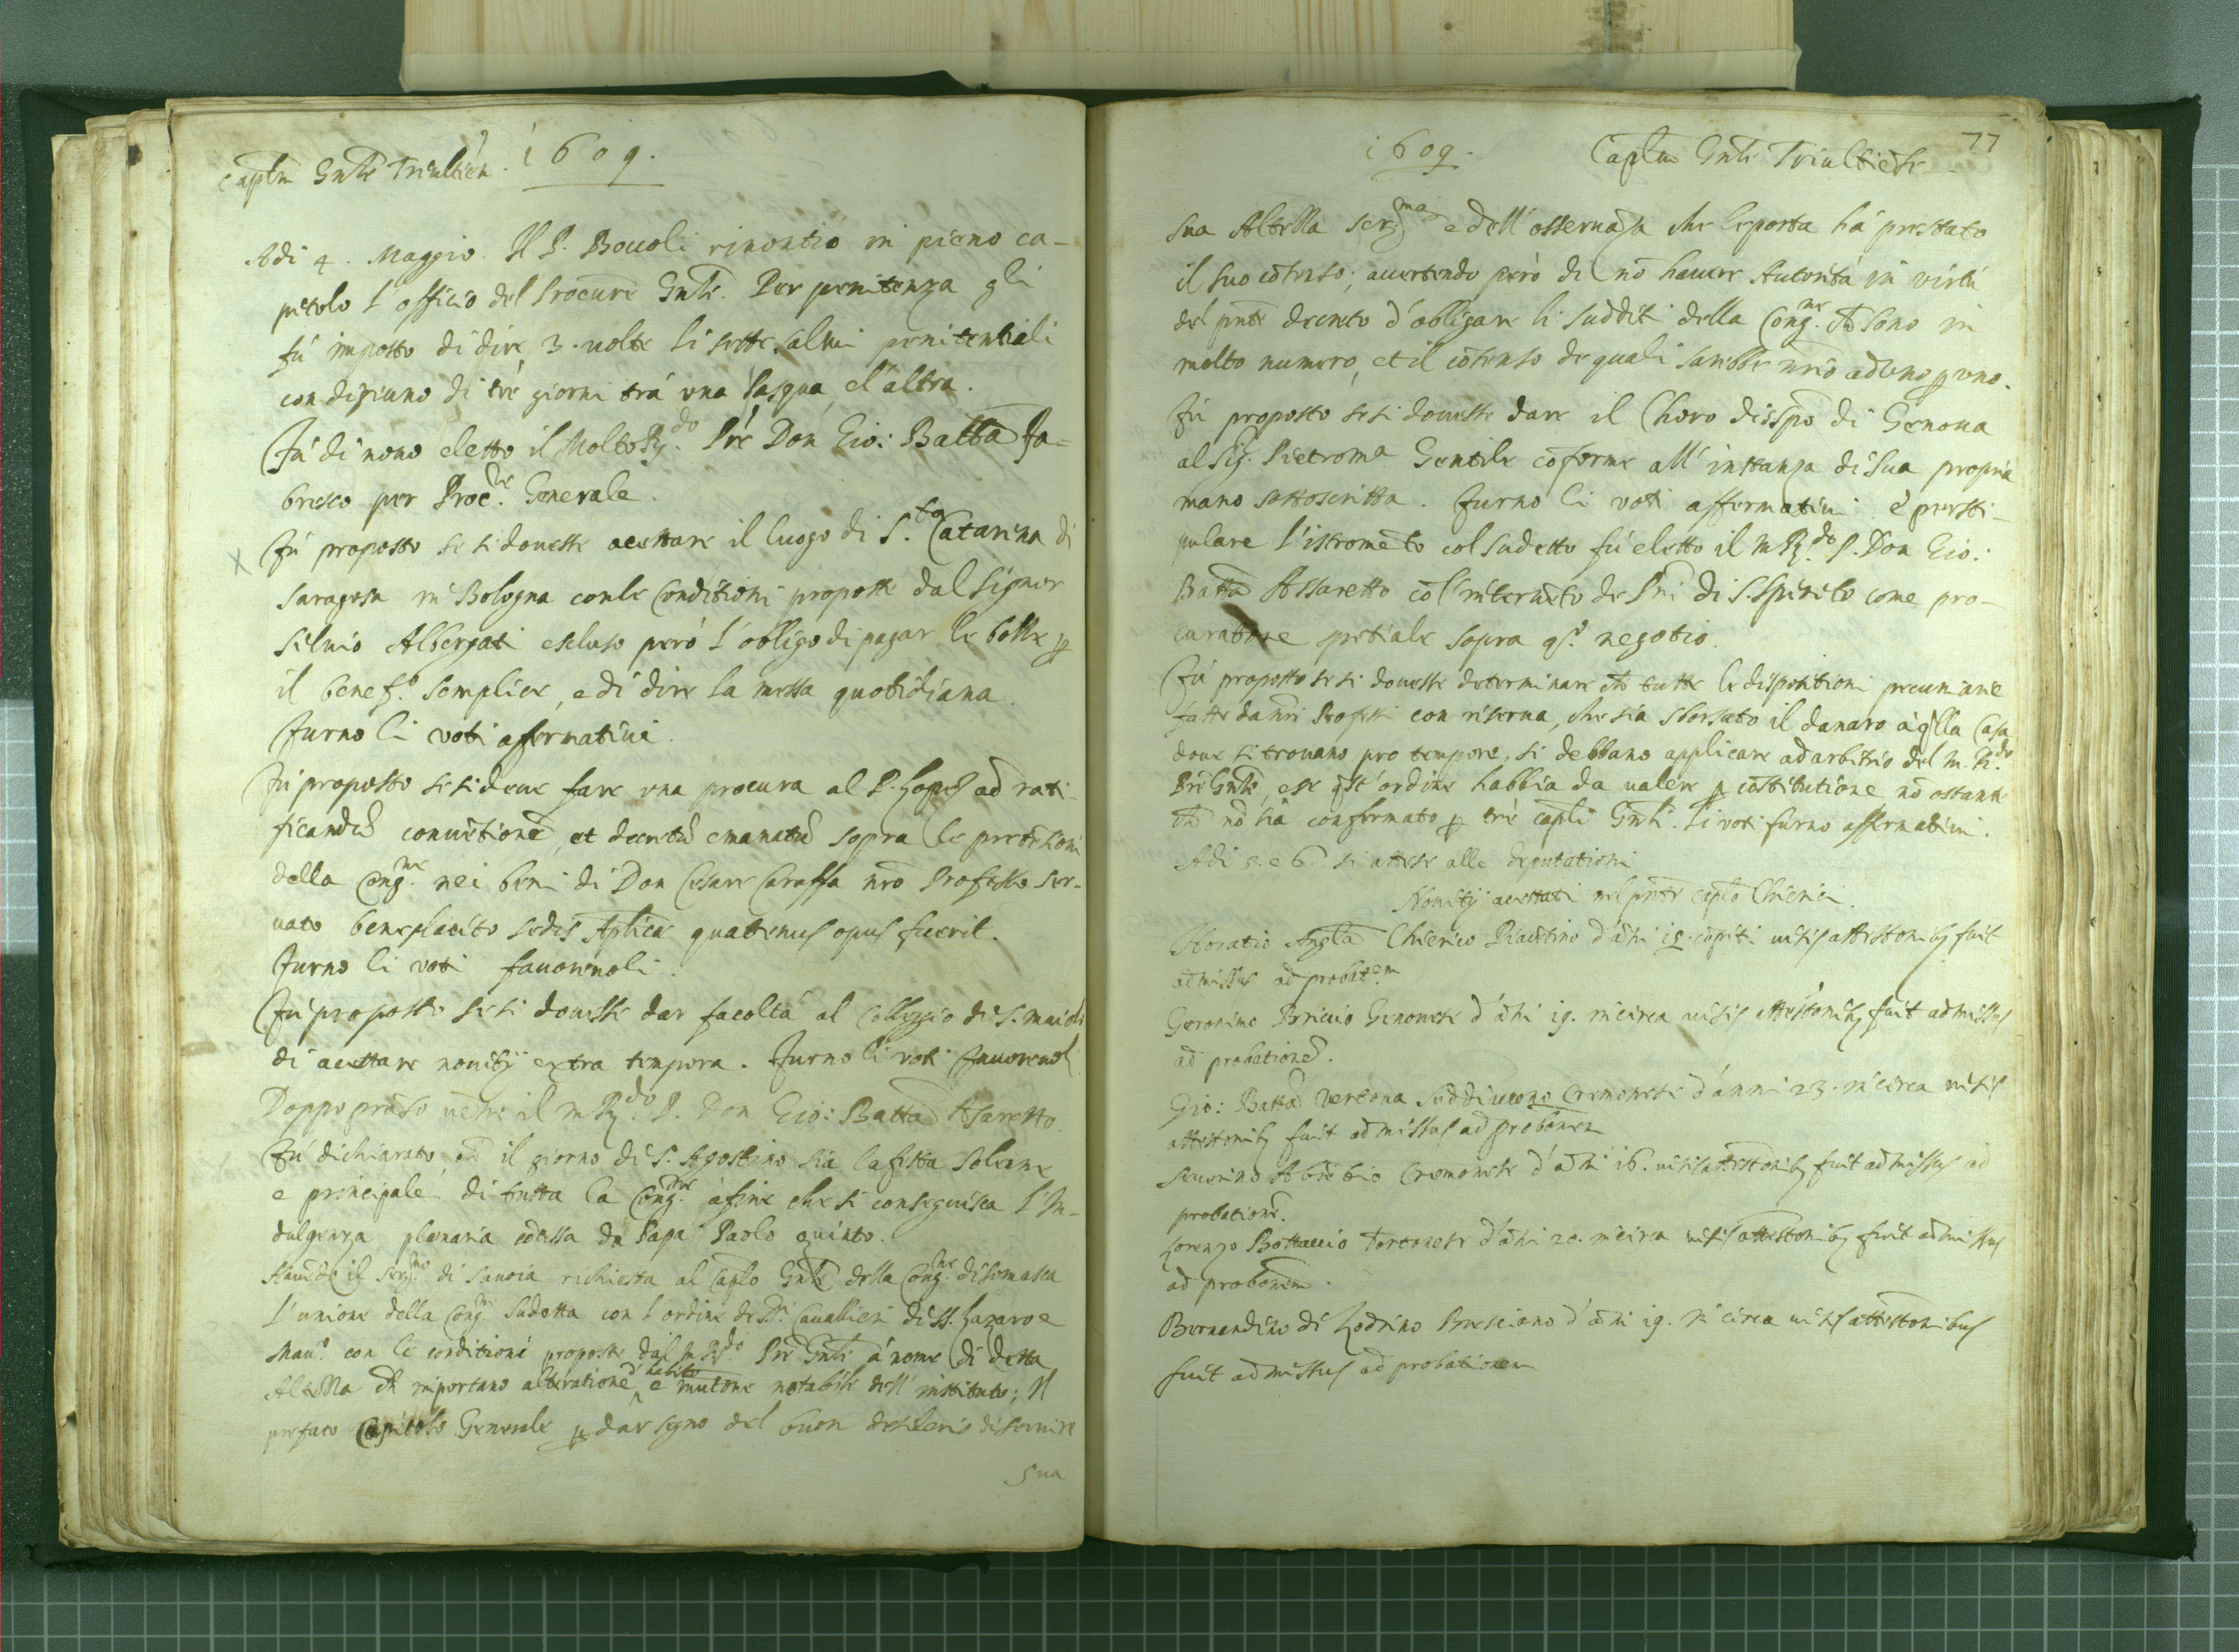 Captm Gnle Triultien.
1609.
Adi 4. Maggio. Il P. Bouoli rinontiò in pieno ca-
pitolo l'officio del Procure Gnle. Per penitenza gli
fù imposto di dire 3. uolte li sette salmi penitentiali
con digiuno di trè giorni trà una Pasqua, e l'altra.
Fù di nouo eletto il Molto Rdo Pre Don Gio: Batta Fa-
bresco per Procre Generale.
Fù proposto se si douesse acettare il luogo di S.ta Catarina di
Saragosa in Bologna con le Conditioni proposte dal Signor
Siluio Albergati escluso però l'obligo di pagar le bolle p
il benef.o semplice, e di dire la messa quotidiana.
Furno li voti affermatiui.
Fù proposto se si deue fare una procura al P. Lopes ad rati-
ficandu conuetione, et decretu emanatu sopra le pretesioni
della Cong.ne nei beni di Don Cesare Caraffa nro Professo ser-
uato beneplacito sedis Aplice quattenus opus fuerit.
Furno li voti fauoreuoli.
Fù proposto se si douesse dar facoltà al Colleggio di S. Maiolo
di acettare nouitij extra tempora. Furno li voti fauoreuoli
Doppo pranso uene il m Rdo P. Don Gio: Batta Asaretto.
Fù dichiarato ch il giorno di S. Agostino sia la festa solene
e principale di tutta la Cong.ne à fine che si conseguisca l'In-
dulgenza plenaria cocessa da Papa Paolo quinto.
Hauedo il Ser.mo di Sauoia richiesta al Caplo Gnle della Cong.ne di Somasca
l'unione della Cong.ne sudetta con l'ordine de SS.ri Cauallieri di SS. Lazaro e
Mau.o con le conditioni proposte dal m Rdo Pre Gnle à nome di detta
Altezza ch importano alteratione d'habito, e mutone notabile dell'instituto; Il
prefato Capitolo Generale p dar segno del buon desiderio di seruire
Sua
77
1609.
Captm Gnle Triultiese
sua Altezza Ser.ma e dell'osseruaza che le porta hà prestato
il suo cosenso; auertendo però di no hauere Autorità in virtù
del pnte decreto d'obligare li sudditi della Cong.ne ch sono in
molto numero, et il cosenso de quali sarebbe nrio ad uno p uno.
Fù proposto se si douesse dare il Choro di S.Spo di Genoua
al Sig. Pietroma Gentile coforme all'instanza di sua propria
mano sottoscritta. Furno li voti affermatiui: e per sti-
pulare l'istrometo col sudetto fù eletto il m Rdo P. Don Gio:
Batta Assaretto col'interueto de Pri di S.Spirito come pro-
curatore spetiale sopra qs.o negotio.
Fù proposto se si douesse determinare ch tutte le dispositioni pecuniarie
fatte da nri Professi con riserua, che sia sborsato il danaro à qlla Casa
doue si trouano pro tempore, si debbano applicare ad arbitrio del M. R.do
Pre Gnle, e se qst'ordine habbia da ualere p costitutione no ostante
ch no sia confermato p trè capli Gnli. Li voti furno affermatiui.
Adi 5. e 6. si attese alle deputationi
Nouitij acettati nel pnte caplo Chierici.
Horatio Angta Chierico Piacetino d'ani 18. copiti uisis attestonibz fuit
admissus ad probat.em
Geronimo Bricio Genouese d'ani 19. in circa uisis attestonibz fuit admissus
ad probatione.
Gio: Batta Vertoua Suddiacono Cremonese d'anni 23. in circa uisis
attestonibz fuit admissus ad probonen
Seuerino Abretio Cremonese d'ani 16. uisis attestonibz fuit admissus ad
probatione.
Lorenzo Bottaccio Tortonese d'ani 20. in circa uisis attestonibz fuit admissus
ad probonem.
Bernardino di Lodrino Bresciano d'ani 19. in circa uisis attestonibus
fuit admissus ad probationem